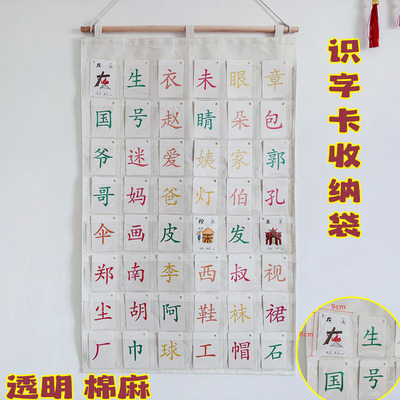 左 生 衣 未 眼 章
国 号 赵 睛 朵 包
爷 迷 爱 姨 家 郭
哥 妈 爸 灯 伯 孔
伞 画 皮 发
郑 南 李 西 叔 视
尘 胡 阿 鞋 袜 裙
厂 巾 球 工 帽 石
识字卡收纳袋
透明 棉麻
9cm
左 生
国 号